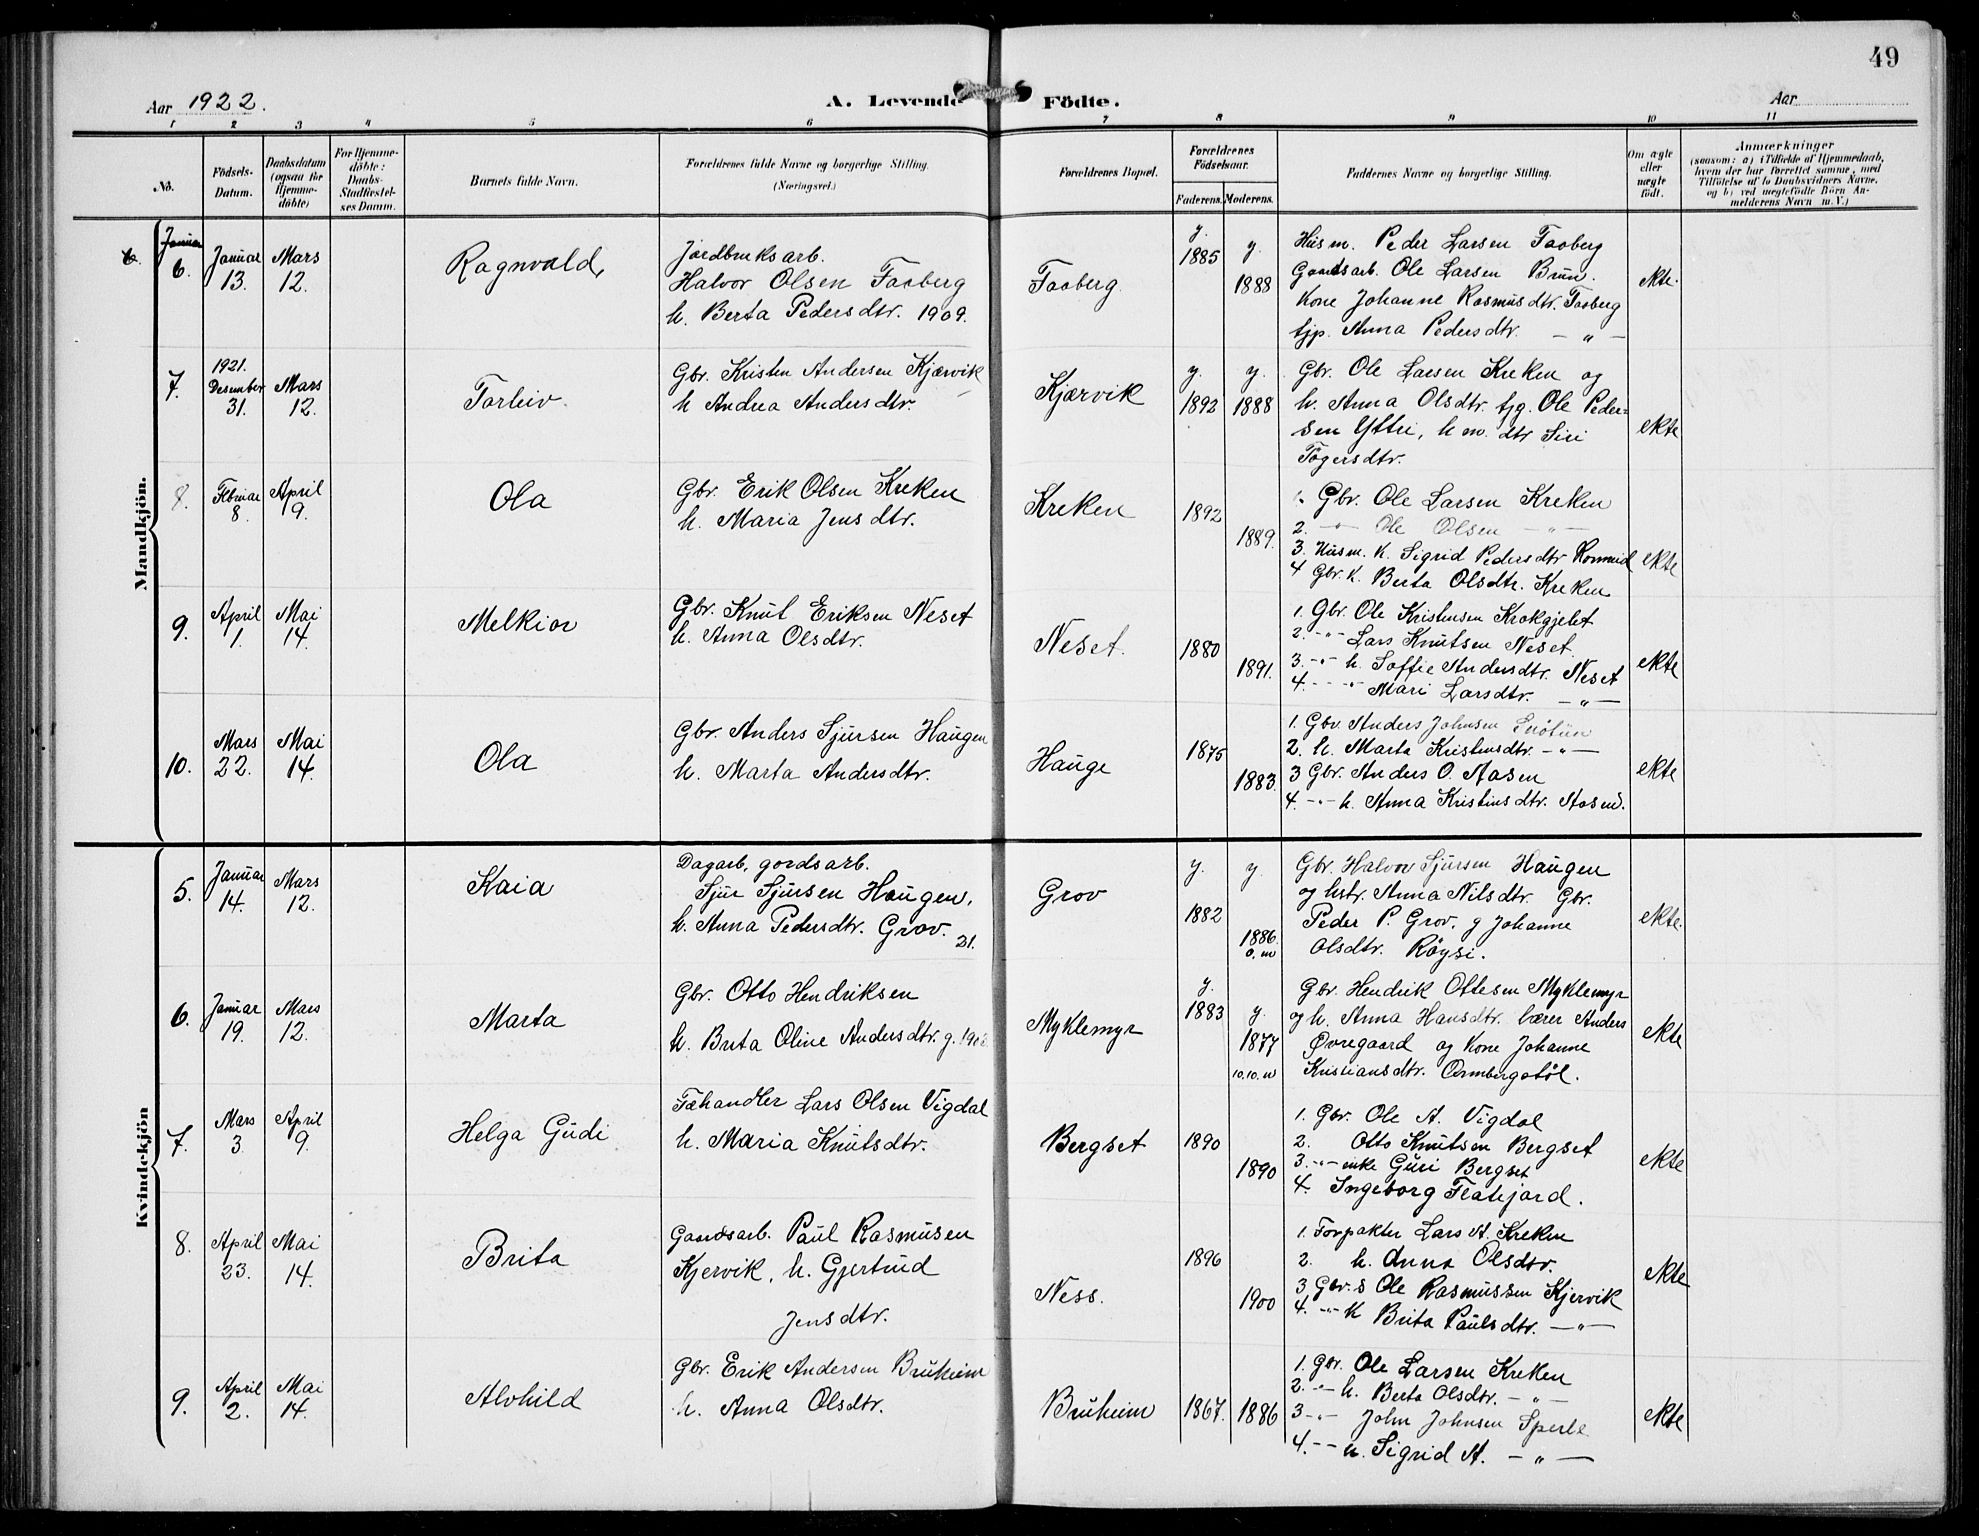 49
Aar 1922.
A. Levende Födte.
Aar
1 2 3 4 5 6 7 8 9 10 11
No.
Födsels-Datum.
Daabsdatum (ogsaa for Hjemme-döbte)
For Hjemme-döbte: Daabs-Stadfæstel-ses Datum.
Barnets fulde Navn.
Forældrenes fulde Navne og borgerlige Stilling.
(Næringsvei.)
Forældrenes Bopæl.
Forældrenes Födselsaar.
Faderens. Moderens.
Faddernes Navne og borgerlige Stilling.
Om ægte eller uægte födt.
Anmærkninger
(saasom: a) i Tilfælde af Hjemmedaab,
hvem der har forrettet samme, med
Tilföielse af to Daabsvidners Navne,
og b) ved uægtefödte Börn An-
melderens Navn m. V.)
Mandkjön.
6. Januar
6 Januar 13. Mars 12.
Ragnvald,
Jordbruksarb.
Halvor Olsen Faaberg
h. Berta Pedersdtr. 1909.
Faaberg
y. 1885 y. 1888
Husm. Peder Larsen Faaberg
Gaardsarb. Ole Larsen Brun.
Kone Johanne Rasmusdtr. Faaberg
tjp. Anna Pedersdtr. — " —
ekte.
7. 1921. Desember 31. Mars 12.
Torleiv.
Gbr. Kristen Andersen Kjærvik
h Andrea Andersdtr.
Kjærvik
y. 1892 y. 1888
Gbr. Ole Larsen Kreken og
h. Anna Olsdtr. tjg. Ole Peder-
sen Ytri, h m. dtr Siri
Tögersdtr.
ekte
8. Februar 8. April 9.
Ola
Gbr. Erik Olsen Kreken
h. Maria Jensdtr.
Kreken
1892 1889.
1. Gbr. Ole Larsen Kreken
2. — " Ole Olsen — " —
3. Husm. k. Sigrid Pedersdtr
4 Gbr. k. Berta Olsdtr. Kreken
ekte
9. April 1. Mai 14.
Melkior
Gbr. Knut Eriksen Neset
h. Anna Olsdtr.
Neset.
1880 1891.
1. Gbr. Ole Kristensen Krokgjelet
2. - " - Lars Knutsen Neset.
3. - " - h. Soffie Andersdtr. Neset
4. - - " Mari Larsdtr. — " —
ekte
10. Mars 22. Mai 14.
Ola
Gbr. Anders Sjursen Haugen
h. Marta Andersdtr.
Hauge
1875 1883.
1. Gbr. Anders Johnsen Snötun
2. h. Marta Kristensdtr. — " —
3 Gbr. Anders O. Aasen
4. - " - h. Anna Kristensdtr. Aasen.
ekte
Kvindekjön
5. Januar 14. Mars 12.
Kaia
Dagarb, gordsarb.
Sjur Sjursen Haugen,
h. Anna Pedersdtr. Grov. 21.
Grov
y. 1882 y. 1886.
Gbr. Halvor Sjursen Haugen
og hstr. Anna Nilsdtr. Gbr.
Peder P. Grov, g Johanne
Olsdtr. Röysi.
ekte.
6. Januar 19. Mars 12.
Marta
Gbr. Otto Hendriksen
h. Brita Oline Andersdtr. g.
Myklemyr
y. 1883 y. 1877
Gbr. Hendrik Ottesen Myklemyr
og h. Anna Hansdtr. lærer Anders
Øvregaard og Kone Johanne
Kristiansdtr. Ormbergstöl.
ekte
7. Mars 3. April 9.
Helga Gudi
Fæhandler Lars Olsen Vigdal
h. Maria Knutsdtr.
Bergset
1890 1890
1. Gbr. Ole A. Vigdal
2. Otto Knutsen Bergset
3. - " - enke Guri Bergset
4. Ingeborg Flatejord.
ekte
8. April 23. Mai 14.
Brita
Gaardsarb. Paul Rasmusen
Kjervik, h. Gjertrud
Jensdtr.
Ness.
1896 1900
1. Forpakter Lars A. Kreken
2. h. Anna Olsdtr.
3 Gbr. s Ole Rasmussen Kjervik
4. - " - k Brita Paulsdtr. — " —
ekte
9. April 2. Mai 14.
Alvhild
Gbr. Erik Andersen Bruheim
h. Anna Olsdtr.
Bruheim
1867. 1886
1. Gbr. Ole Larsen Kreken
2. - " - h. Berta Olsdtr. — " —
3 - " - John Johnsen Sperle
4. - " - h. Sigrid A. — " —
ekte